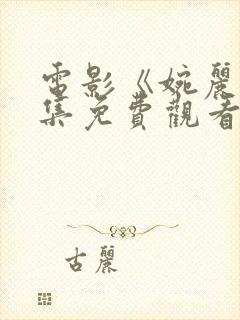 電影《婉麗
集免費觀看
古麗